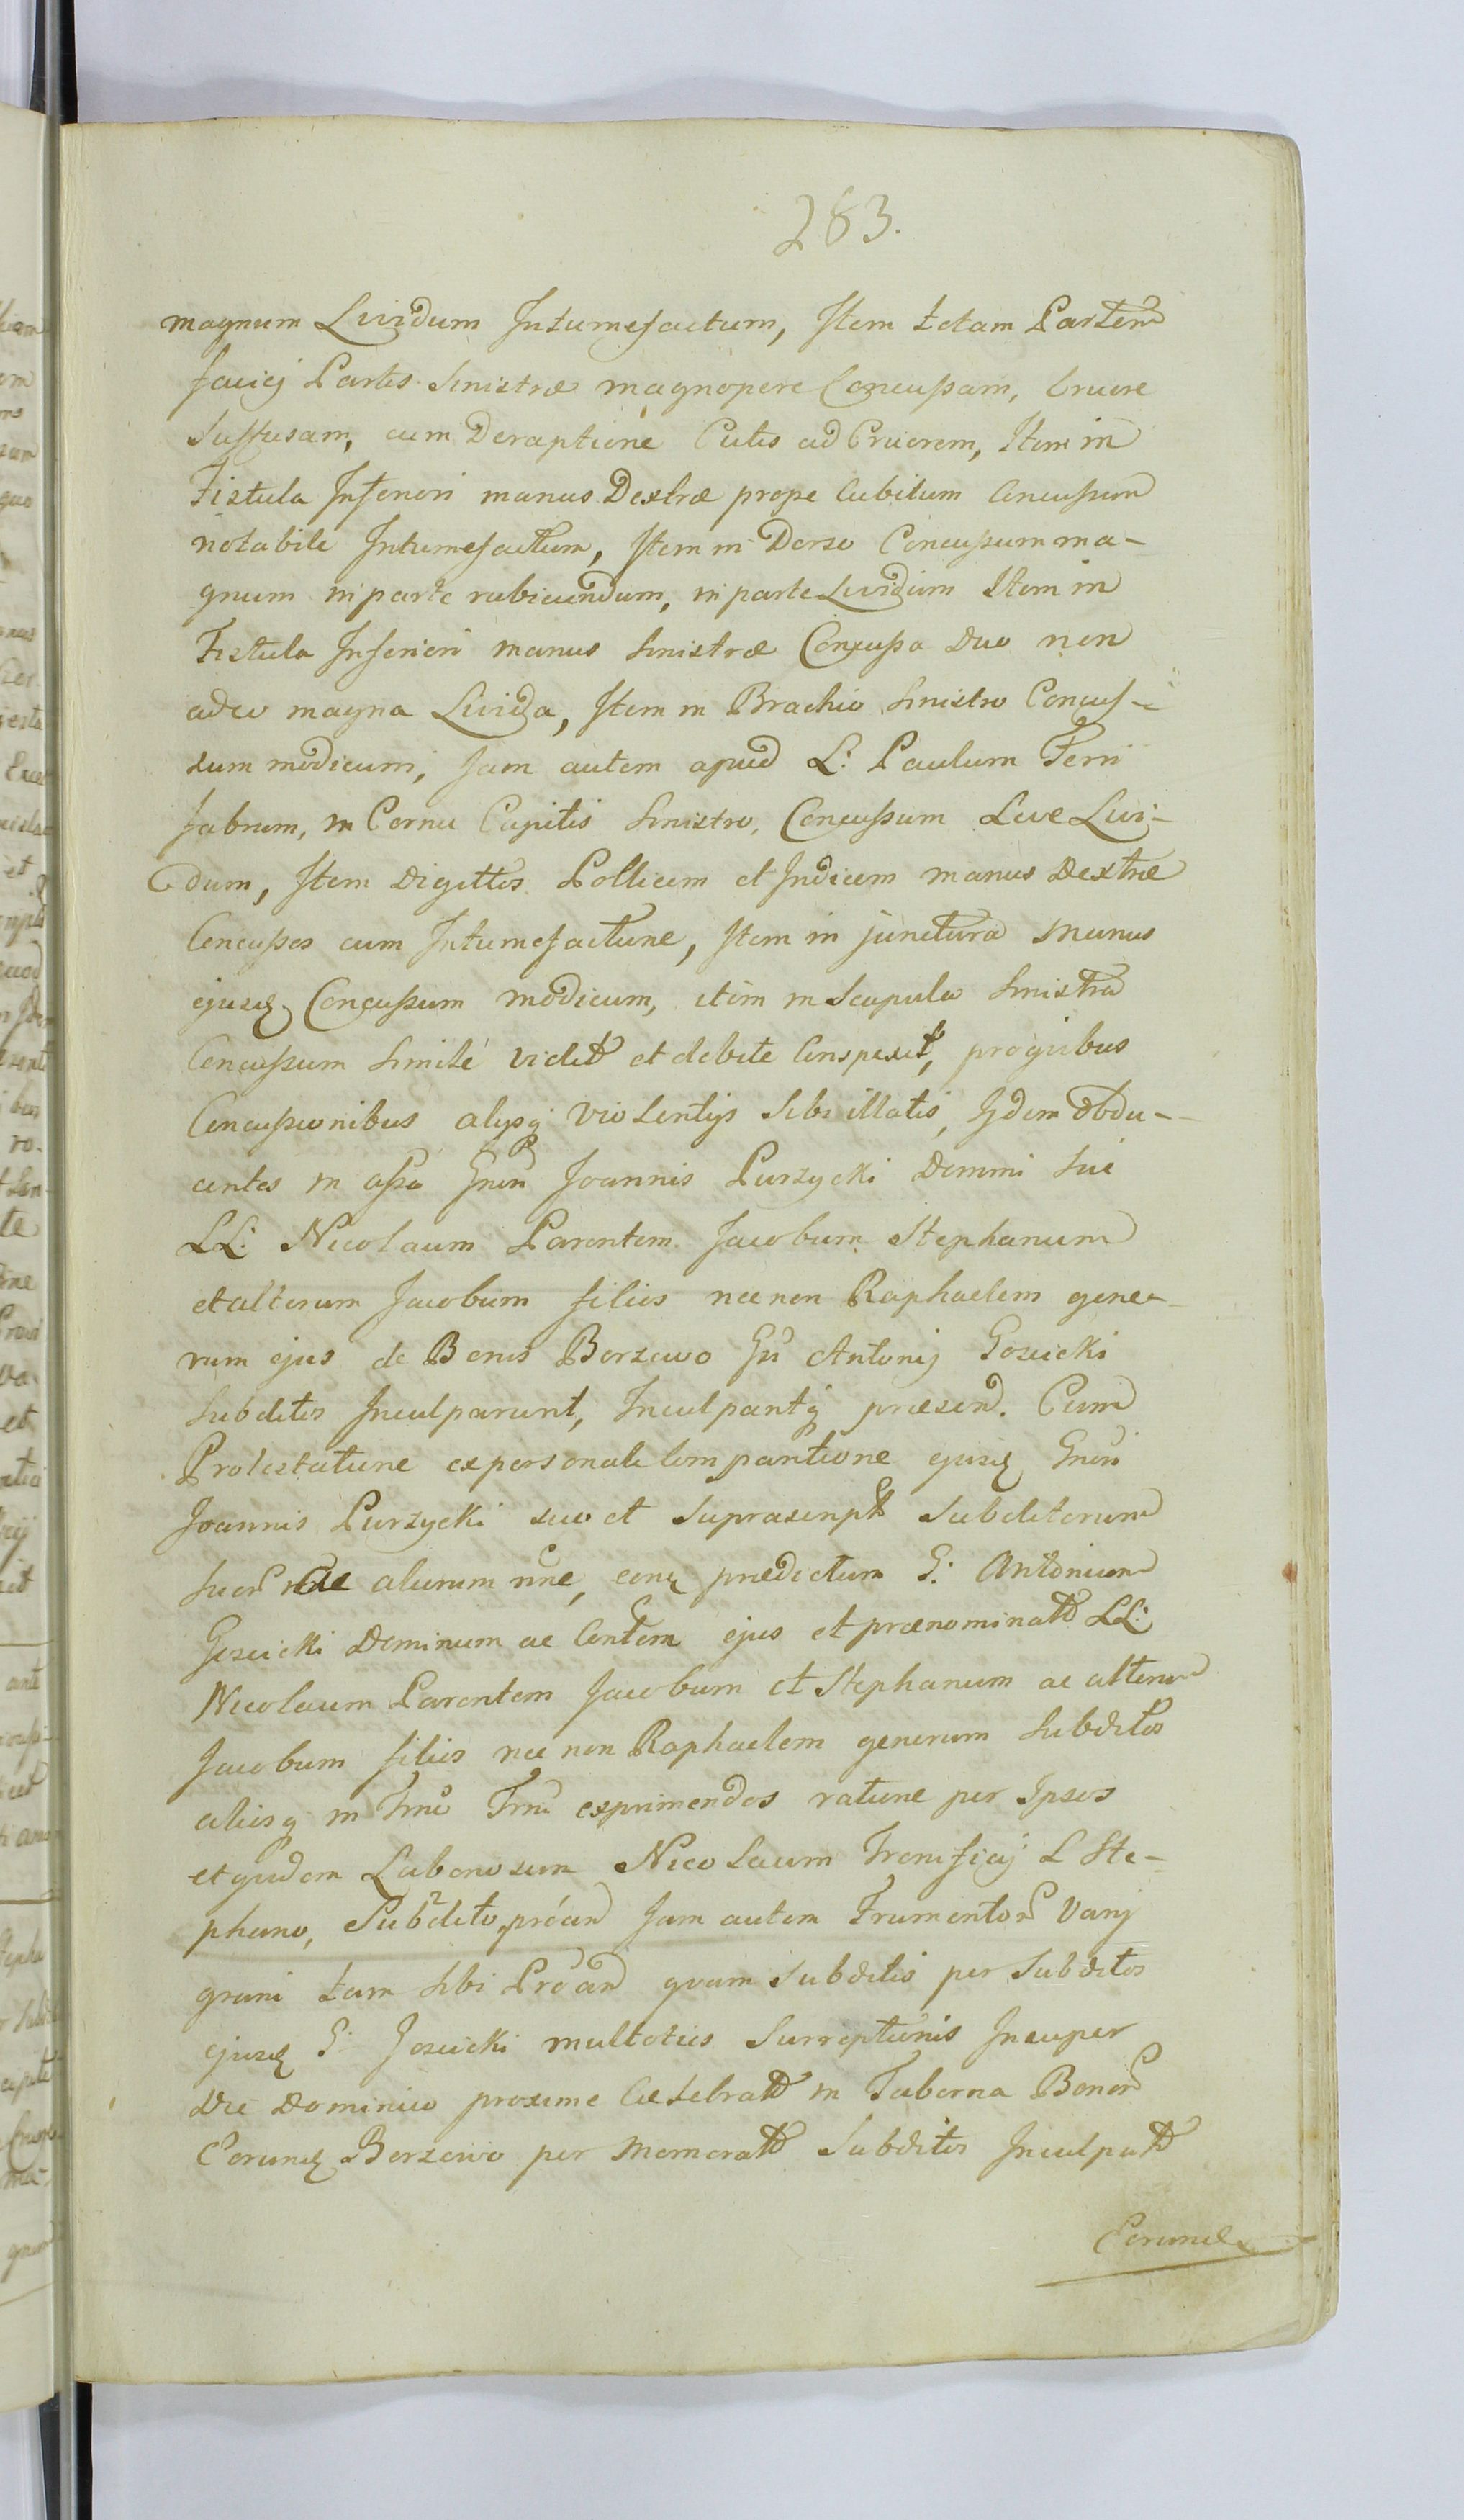 283.
magnum Lividum Intumefactum, Item totam Partem
faciej Partis Sinistræ magnopere Concussam, Cruore
Suffusam, cum Deraptione Cutis ad Cruorem, Item in
Fistula Inferiori manus Dextræ prope Cubitum Concussum
notabile Intumefactum, Item in Dorso Concussum ma-
gnum in parte rubicundum, in parte Lividum Item in
Fistula Inferiori manus Sinistræ Concussa Duo non
adeo magna Livida, Item in Brachio Sinistro Concus-
sum modicum, Jam autem apud L: Paulum Ferri
fabrum, in Cornu Capitis Sinistro, Concussum Leve Livi-
dum, Item Digittos Pollicem et Indicem manus Dextræ
Concussos cum Intumefactione, Item in junctura manus
ejusq Concussum modicum, item in Scapula Sinistra
Concussum Simile vidit et debite Conspexit, pro quibus
Concussionibus alysq violentijs Sibi illatis, Ijdem obdu-
centes in assa Gnri Joannis Purzycki Domini Sui
LL: Nicolaum Parentem Jacobum Stephanum
et alterum Jacobum filios nec non Raphaelem gene-
rum ejus de Bonis Borzewo Gi Antonij Gosicki
Subditos Inculparunt, Inculpantq præsen. Cum
Protestatione ex personali Comparitione ejusq Gnri
Joannis Purzycki suo et Suprascript Subditorum
Suor aliorum nne, conq prædictum G: Antonium
Gosicki Dominum ac Conttem ejus et prænominatt LL:
Nicolaum Parentem Jacobum et Stephanum ac alterum
Jacobum filios nec non Raphaelem generum Subditos
aliosq in Trno Trno exprimendos ratione per Ipsos
et quidem Laboriosum Nicolaum L Ste-
phano, Subdito, proan Jam autem Frumentor Varij
grani tam Sibi Proan quam Subditis per Subditos
ejusq G: Josicki multoties Surreptionis Insuper
Die Dominico proxime Celebratt in Taberna Bonor
Eorundq Borzewo per Memoratt Subditos Inculpatt
Eorund